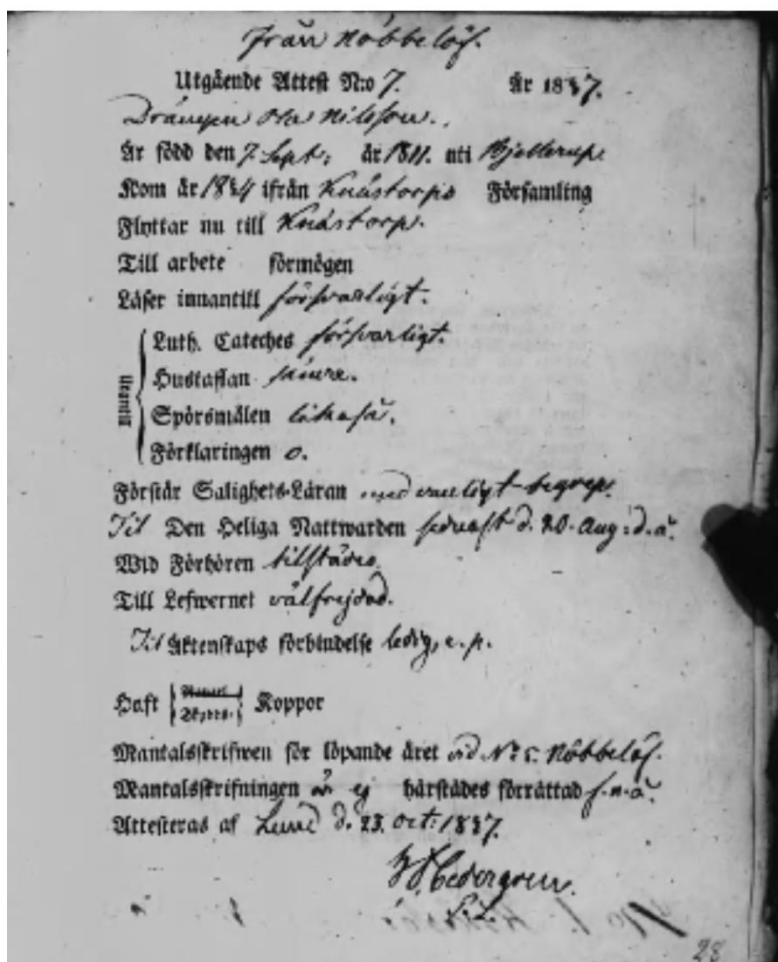 Från Nöbbelöf.
Utgående Attest N:o 7. År 1837.
Drängen Ola Nilsson.
Är född den 7 Sept: år 1811. uti Bjellerup
Kom år 1834 ifrån Knästorps Församling
Flyttar nu till Knästorp.
Till arbete förmögen
Läser innantill försvarligt.
Utantill
Luth. Cateches försvarligt.
Hustaflan
Spörsmålen likaså.
Förklaringen o.
Förstår Salighets-Läran med vanligt begrep.
Til Den Heliga Nattwarden sednast d. 20. Aug: d.å.
Wid Förhören tillstädes
Till Lefwernet välfrejdad.
Til Äktenskaps förbindelse ledig, e.p.
Haft Koppor
Mantalsskrifwen för löpande året vid N:o 5. Nöbbelöf.
Mantalsskrifningen är ej härstädes förrättad f.n.å.
Attesteras af Lund d. 23. oct: 1837.
Cedergren.
28